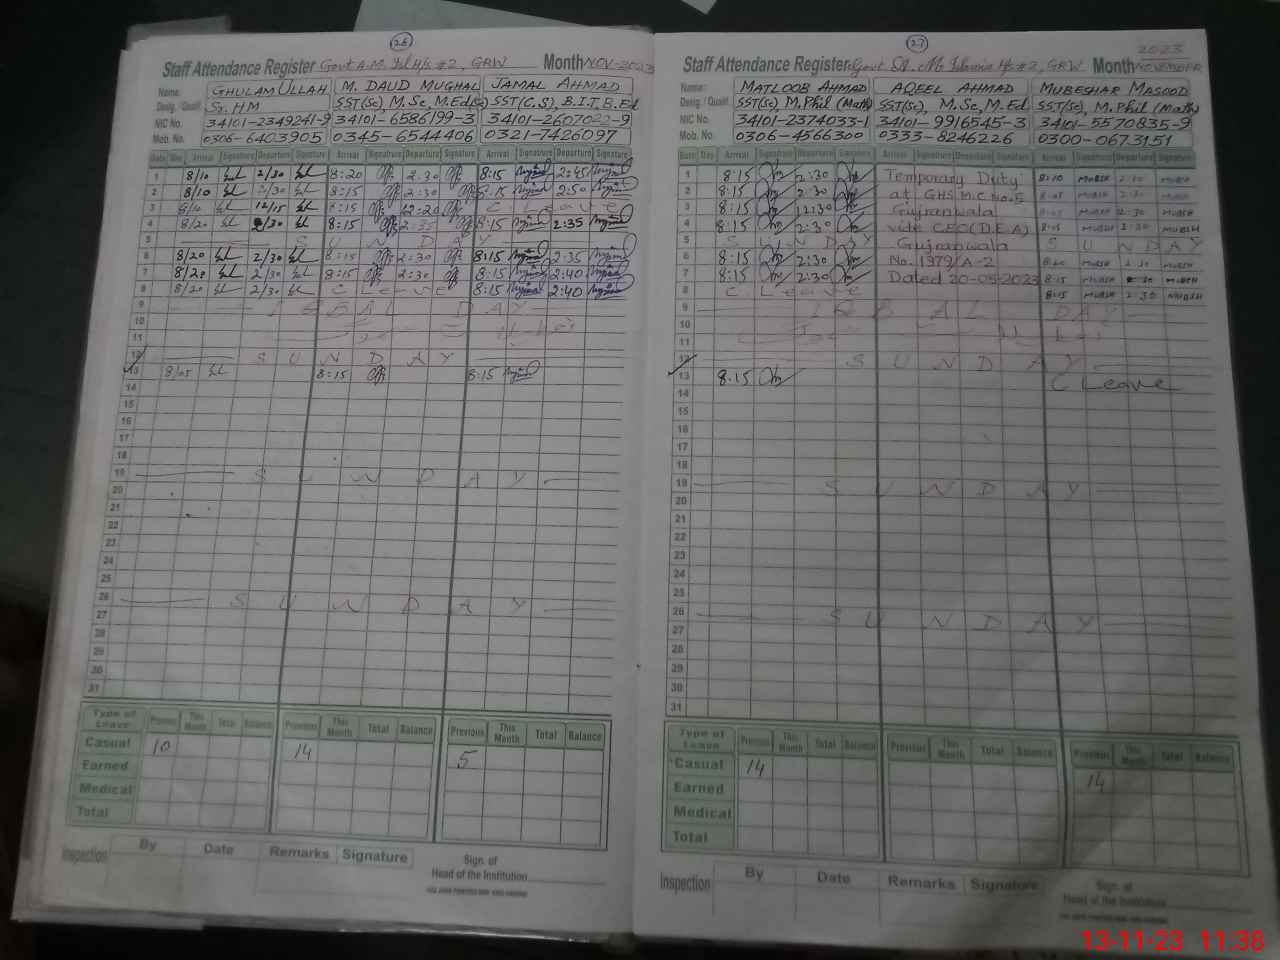 26
Staff Attendance Register Govt A.M. Isl H/S #2, GRW Month NOV-2023
Name: GHULAM ULLAH M. DAUD MUGHAL JAMAL AHMAD
Desig. / Qualif. Sr. HM SST(Sc) M.Sc, M.Ed SST(C.S), B.I.T, B.Ed
NIC No. 34101-2349241-9 34101-6586199-3 34101-2607022-9
Mob. No. 0306-6403905 0345-6544406 0321-7426097
Date Day Arrival Signature Departure Signature Arrival Signature Departure Signature Arrival Signature Departure Signature
1 8/10 2/30 8:20 2:30 8:15 2:45
2 8/10 2/30 8:15 2:30 8:15 2:50
3 8/10 12/15 8:15 12:20 C Leave
4 8/20 2/30 8:15 2:35 8:15 2:35
5 S U N D A Y
6 8/20 2/30 8:15 2:30 8:15 2:35
7 8/20 2/30 8:15 2:30 8:15 2:40
8 8/20 2/30 C Leave 8:15 2:40
9 IQBAL DAY
10
11
12 S U N D A Y
13 8/05 8:15 8:15
14
15
16
17
18
19 S U N D A Y
20
21
22
23
24
25
26 S U N D A Y
27
28
29
30
31
Type of Leave Previous This Month Total Balance Previous This Month Total Balance Previous This Month Total Balance
Casual 10 14 5
Earned
Medical
Total
Inspection By Date Remarks Signature Sign. of Head of the Institution
27
2023
Staff Attendance Register Govt. A. M. Islamia H/S #2, GRW Month NOVEMBER
Name: MATLOOB AHMAD AQEEL AHMAD MUBESHAR MASOOD
Desig. / Qualif. SST(Sc) M.Phil (Math) SST(Sc), M.Sc, M.Ed SST(Sc), M.Phil (Math)
NIC No. 34101-2374033-1 34101-9916545-3 34101-5570835-9
Mob. No. 0306-4566300 0333-8246226 0300-0673151
Date Day Arrival Signature Departure Signature Arrival Signature Departure Signature Arrival Signature Departure Signature
1 8:15 2:30 Temporary Duty 8:10 MUBSH 2:30 MUBSH
2 8:15 2:30 at GHS M.C No.5 8:05 MUBSH 2:30 MUBSH
3 8:15 12:30 Gujranwala MUBSH 12:30 MUBSH
4 8:15 2:30 vide CEO(D.E.A) 8:05 MUBSH 2:30 MUBSH
5 S U N D A Y Gujranwala S U N D A Y
6 8:15 2:30 No. 1979/A-2 MUBSH 2:30 MUBSH
7 8:15 2:30 Dated 20-05-2023 8:15 MUBSH 2:30 MUBSH
8 C. Leave 8:15 MUBSH 2:30 MUBSH
9 IQBAL DAY
10
11
12 S U N D A Y
13 8:15 C Leave
14
15
16
17
18
19 S U N D A Y
20
21
22
23
24
25
26 S U N D A Y
27
28
29
30
31
Type of Leave Previous This Month Total Balance Previous This Month Total Balance Previous This Month Total Balance
Casual 14 14
Earned
Medical
Total
Inspection By Date Remarks Signature Sign. of Head of the Institution
13-11-23 11:38